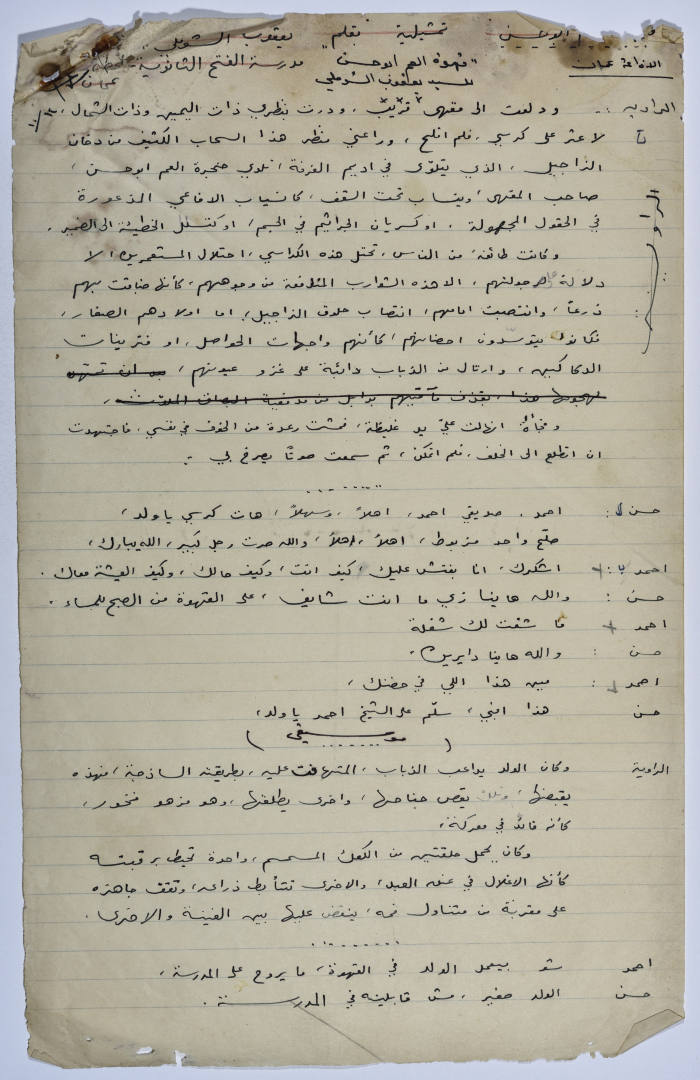 تمثيلية بقلم يعقوب الشويلي
الاذاعة عمان "قهوة العم ابو حسن" مدرسة الفتح الثانوية
للسيد يعقوب الشويلي عمان
الراوية :- ودلفت الى مقهى قريب، ودرت بنظري ذات اليمين وذات الشمال،
لا عثر على كرسي، فلم افلح، وراعني منظر هذا السحاب الكثيف من دخان
الزاجيل، الذي يتلوّى في اديم الغرفة، تلوي حنجرة العم ابو حسن،
صاحب المقهى، وينساب تحت السقف، كانسياب الافاعي المذعورة
الراوي
في الحقول المجهولة، او كسريان الجراثيم في الجسم، او كتسلل الخطيئة الى الضمير.
وكانت طائفة من الناس، تحتل هذه الكراسي، احتلال المستعمرين، لا
دلالة على رجولتهم، الا هذه الشوارب المندلقة من وجوههم، كأنها ضاقت بهم
ذرعاً، وانتصبت امامهم، انتصاب حلوق الزاجيل، اما اولادهم الصغار،
فكانوا يتوسدون احضانهم، كأنهم واجهات الحواصل، او فترينات
الدكاكين، وارتال من الذباب دائبة على غزو عيونهم،
وفجأة انهالت عليّ يد غليظة، فمشت رعدة من الخوف في نفسي، فاجتهدت
ان اتطلع الى الخلف، فلم اتمكن، ثم سمعت صوتاً يصرخ بي :-
........
حسن : احمد، صديقي احمد، اهلاً، وسهلاً، هات كرسي يا ولد،
صلّح واحد مزبوط، اهلاً، اهلاً، والله صرت رجل كبير، الله يبارك،
احمد : اشكرك، انا بفتش عليك، كيف انت، وكيف حالك، وكيف العيشة معاك.
حسن : والله هاينا زي ما انت شايف، على القهوة من الصبح للمساء.
احمد ما شفت لك شغلة
حسن : والله هاينا دايرين،
احمد : مين هذا اللي في حضنك،
حسن هذا ابني، سلّم على الشيخ احمد يا ولد،
( موسيقى )
الراوية وكان الولد يداعب الذباب، المتهافت عليه، بطريقته الساذجة، فهذه
يقبضها، وتلك يقص جناحها، واخرى يطلقها، وهو مزهو فخور،
كأنه قائد في معركة،
وكان يحمل حلقتين من الكعك المسمسم، واحدة تحيط برقبته
كأنها الاغلال في عنق العبد، والاخرى تتأبط ذراعه، وتقف جاهزة
على مقربة من متناول فمه، ينقض عليها بين الفينة والاخرى.
........
احمد شو بيعمل الولد في القهوة، ما يروح على المدرسة،
حسن الولد صغير، مش قابلينه في المدرسة.